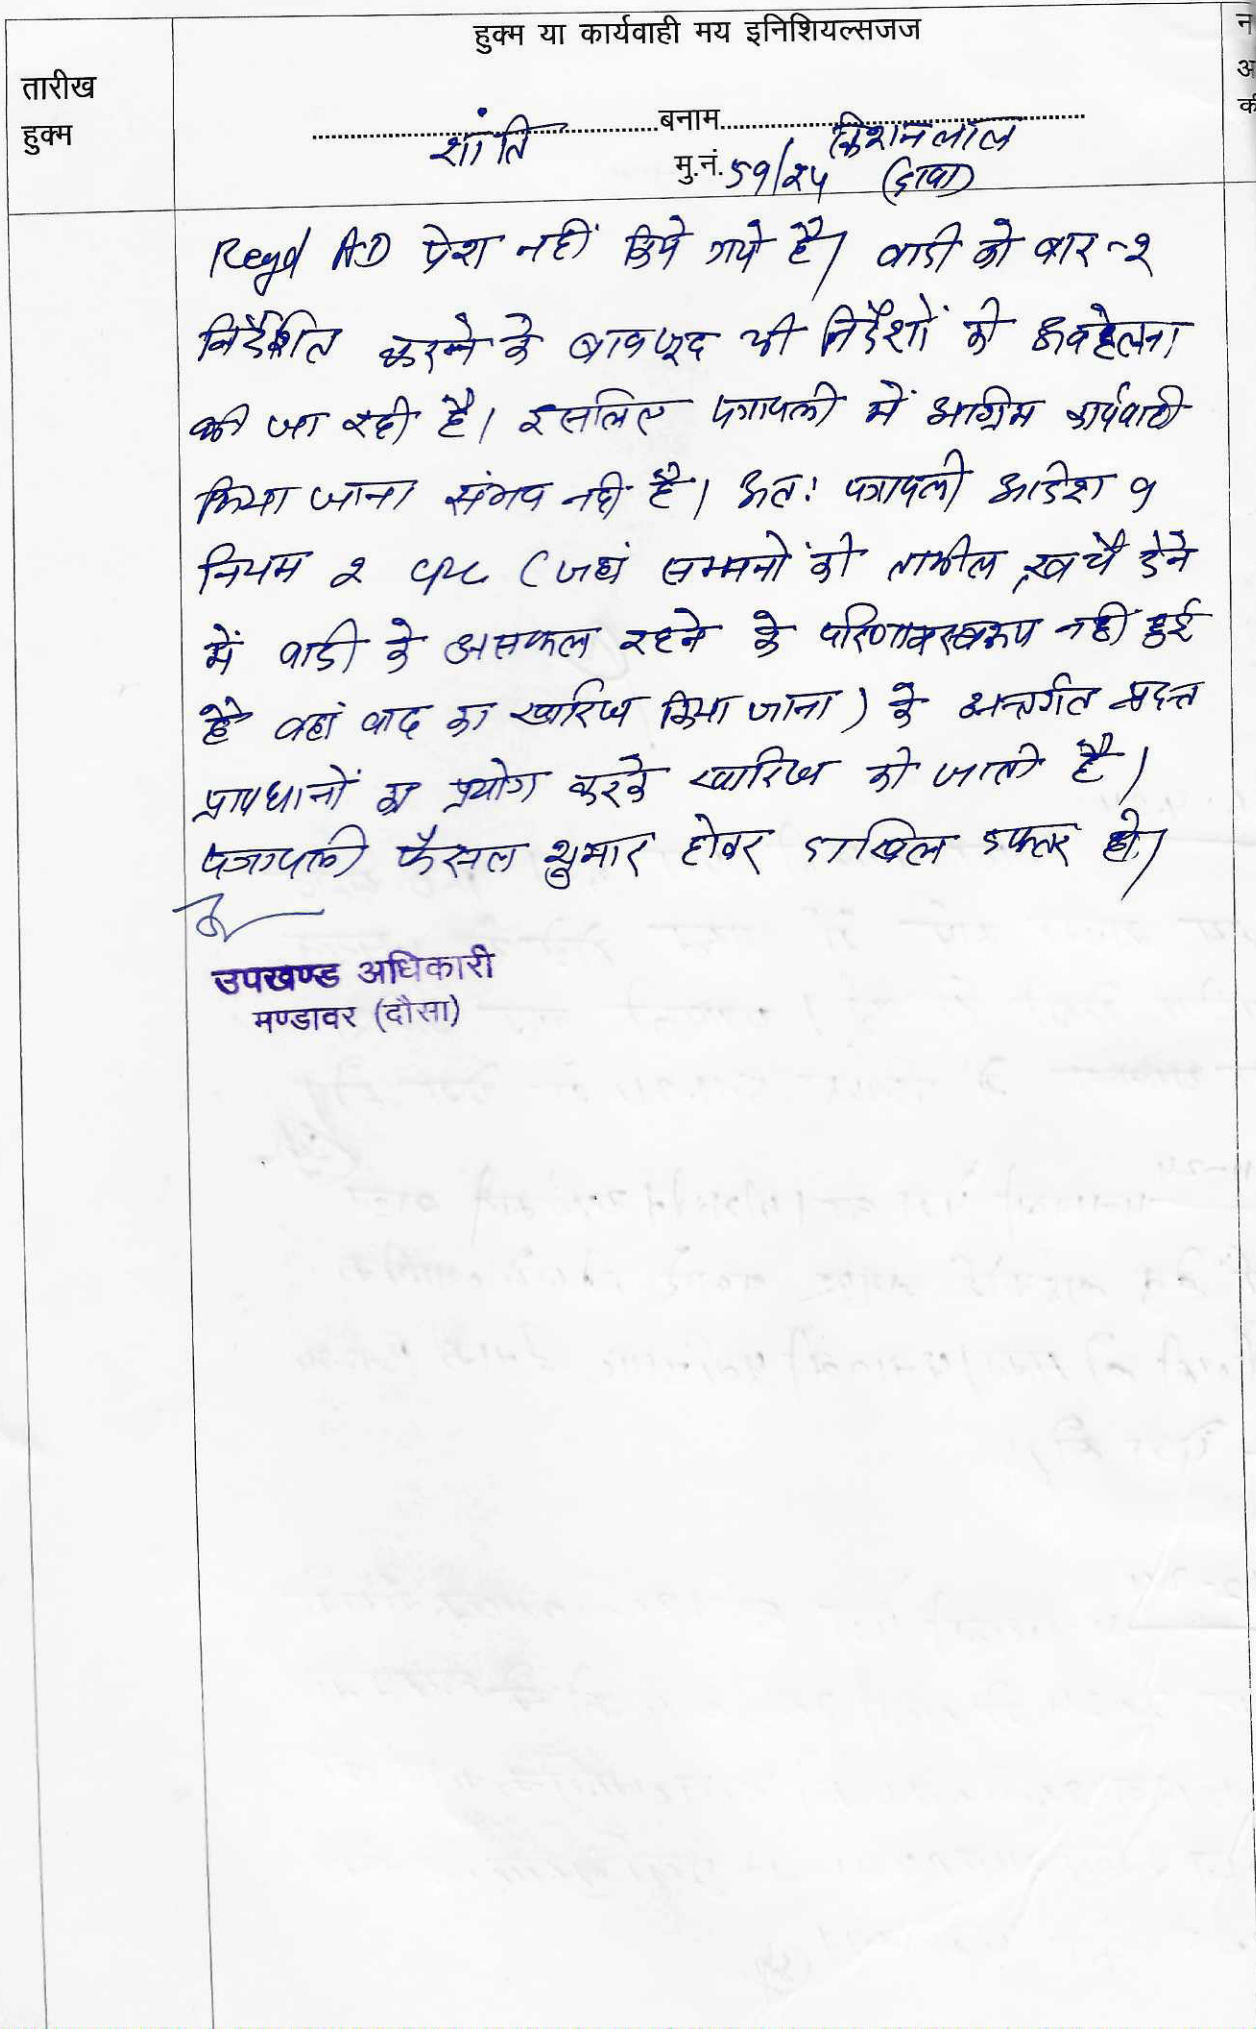 हुक्म या कार्यवाही मय इनिशियल्सजज
तारीख
हुक्म
शांति बनाम किशनलाल
मु.नं. 59/24 (दावा)
Regd AD पेश नहीं किये गये है। वादी को बार-२
निर्देशित करने के बावजूद भी निर्देशों की अवहेलना
की जा रही है। इसलिए पत्रावली में अग्रिम कार्यवाही
किया जाना संभव नहीं है। अतः पत्रावली आदेश 9
नियम 2 CPC (जहां सम्मनों की तामील, खर्चे देने
में वादी के असफल रहने के परिणामस्वरूप नहीं हुई
है वहां वाद का खारिज किया जाना) के अन्तर्गत प्रदत्त
प्रावधानों का प्रयोग करके खारिज की जाती है।
पत्रावली फैसल शुमार होकर दाखिल दफ्तर हो।
उपखण्ड अधिकारी
मण्डावर (दौसा)